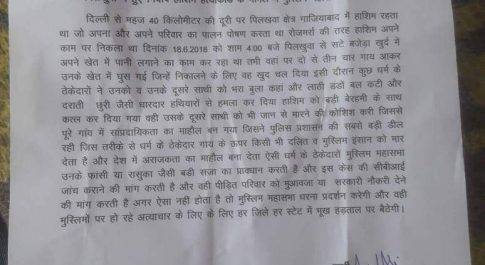 दिल्ली से महज 40 किलोमीटर की दूरी पर पिलखवा क्षेत्र गाजियाबाद में हाशिम रहता
था जो अपना और अपने परिवार का पालन पोषण करता था रोजमर्रा की तरह हाशिम अपने
काम पर निकला था दिनांक 18.6.2018 को शाम 4:00 बजे पिलखुवा से सटे बजेड़ा खुर्द में
अपने खेत में पानी लगाने का काम कर रहा था तभी वहां पर दो से तीन चार गाय आकर
उनके खेत में घुस गई जिन्हें निकालने के लिए वह खुद चल दिया इसी दौरान कुछ धर्म के
ठेकेदारों ने उनको व उनके दूसरे साथी को भरा बुला कहां और लाठी डंडों बल कटी और
दराती छुरी जैसी धारदार हथियारों से हमला कर दिया हाशिम को बड़ी बेरहमी के साथ
कत्ल कर दिया गया वही उसके दूसरे साथी को भी जान से मारने की कोशिश करी जिससे
पूरे गांव में सांप्रदायिकता का माहौल बन गया जिसने पुलिस प्रशासन की सबसे बड़ी ढील
रही जिस तरीके से धर्म के ठेकेदार गाय के ऊपर किसी भी दलित व मुस्लिम इंसान को मार
देता है और देश में अराजकता का माहौल बना देता ऐसी धर्म के ठेकेदारों मुस्लिम महासभा
उनके फांसी या रासुका जैसी बड़ी सज़ा का प्रावधान करती है और इस केस की सीबीआई
जांच कराने की मांग करती है और वही पीड़ित परिवार को मुआवजा या सरकारी नौकरी देने
की मांग करती है अगर ऐसा नहीं होता है तो मुस्लिम महासभा धरना प्रदर्शन करेगी और वही
मुस्लिमों पर हो रहे अत्याचार के लिए के लिए हर जिले हर स्टेट में भूख हड़ताल पर बैठेगी।